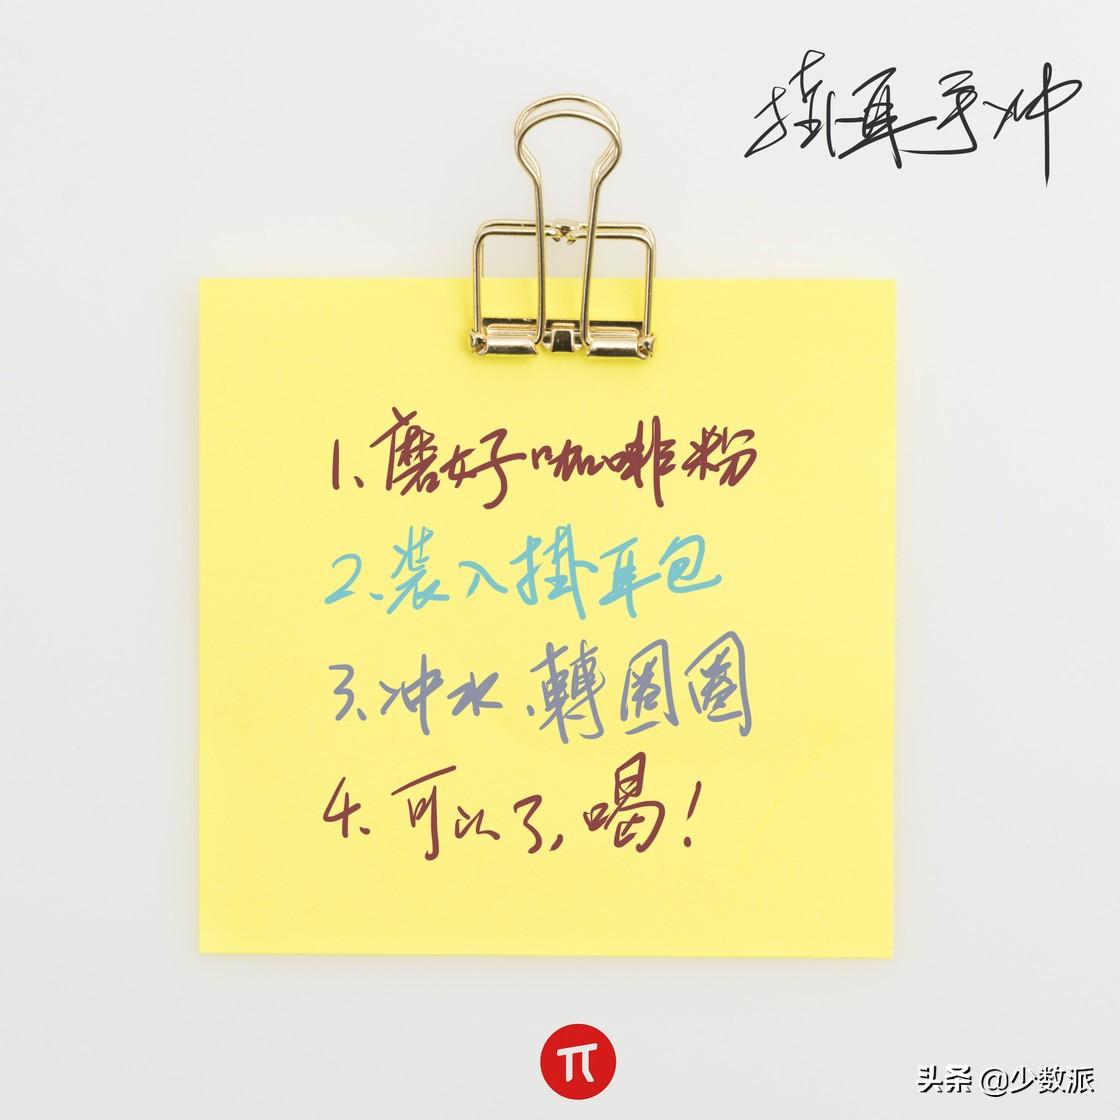 掛耳手冲
1、磨好咖啡粉
2、装入掛耳包
3、冲水、轉圈圈
4、可以了，喝！
π
头条 @少数派